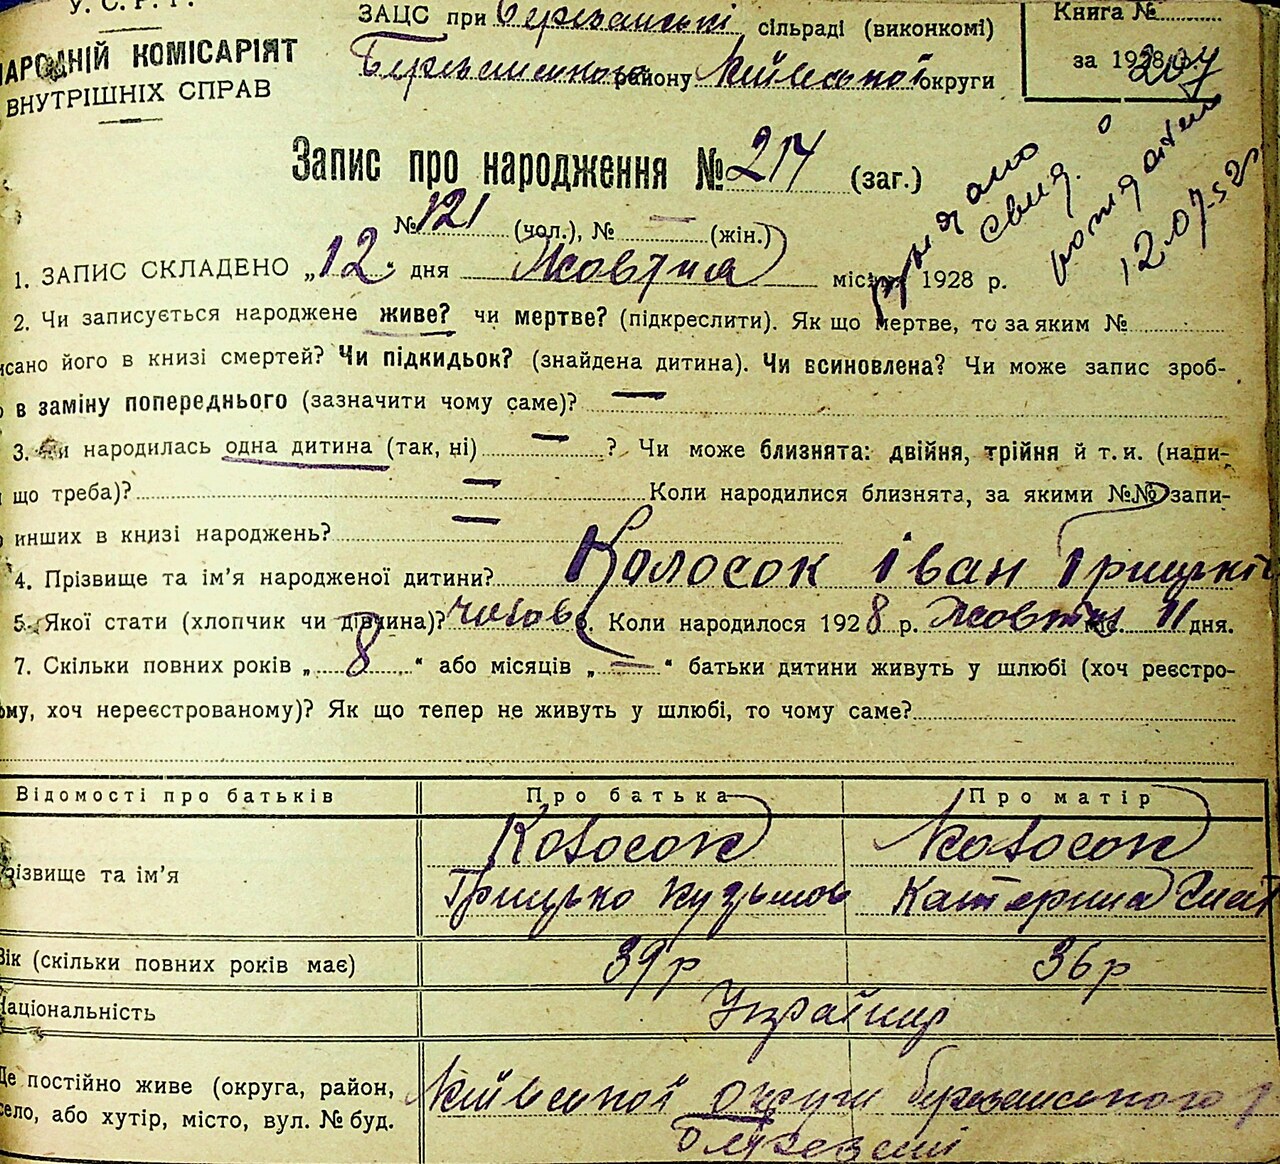 У. С. Р. Р.
НАРОДНІЙ КОМІСАРІЯТ
ВНУТРІШНІХ СПРАВ
ЗАЦС при Березанській сільраді (виконкомі)
Березанського району Київської округи
Книга №
за 1928 р.
Запис про народження № 217 (заг.)
№ 121 (чол.), № — (жін.)
свид.
12.07-52
1. ЗАПИС СКЛАДЕНО „12“ дня Жовтня міс. 1928 р.
2. Чи записується народжене живе? чи мертве? (підкреслити). Як що мертве, то за яким №
исано його в книзі смертей? Чи підкидьок? (знайдена дитина). Чи всиновлена? Чи може запис зроб-
в заміну попереднього (зазначити чому саме)? —
3. Чи народилась одна дитина (так, ні) — ? Чи може близнята: двійня, трійня й т. и. (напи-
що треба)? — Коли народилися близнята, за якими №№ запи-
инших в книзі народжень? —
4. Прізвище та ім'я народженої дитини? Колосок Іван Грицьків
5. Якої стати (хлопчик чи дівчина)? чолов 6. Коли народилося 1928 р. Жовтня міс. 11 дня.
7. Скільки повних років „ 8 “ або місяців „ — “ батьки дитини живуть у шлюбі (хоч реєстро-
ому, хоч нереєстрованому)? Як що тепер не живуть у шлюбі, то чому саме?
Відомості про батьків Про батька Про матір
Прізвище та ім'я
Колосок Колосок
Грицько Кузьмов Катерина Гнат
Вік (скільки повних років має) 39 р 36 р
Національність Українці
Де постійно живе (округа, район,
село, або хутір, місто, вул. № буд.
Київської округи березанського р